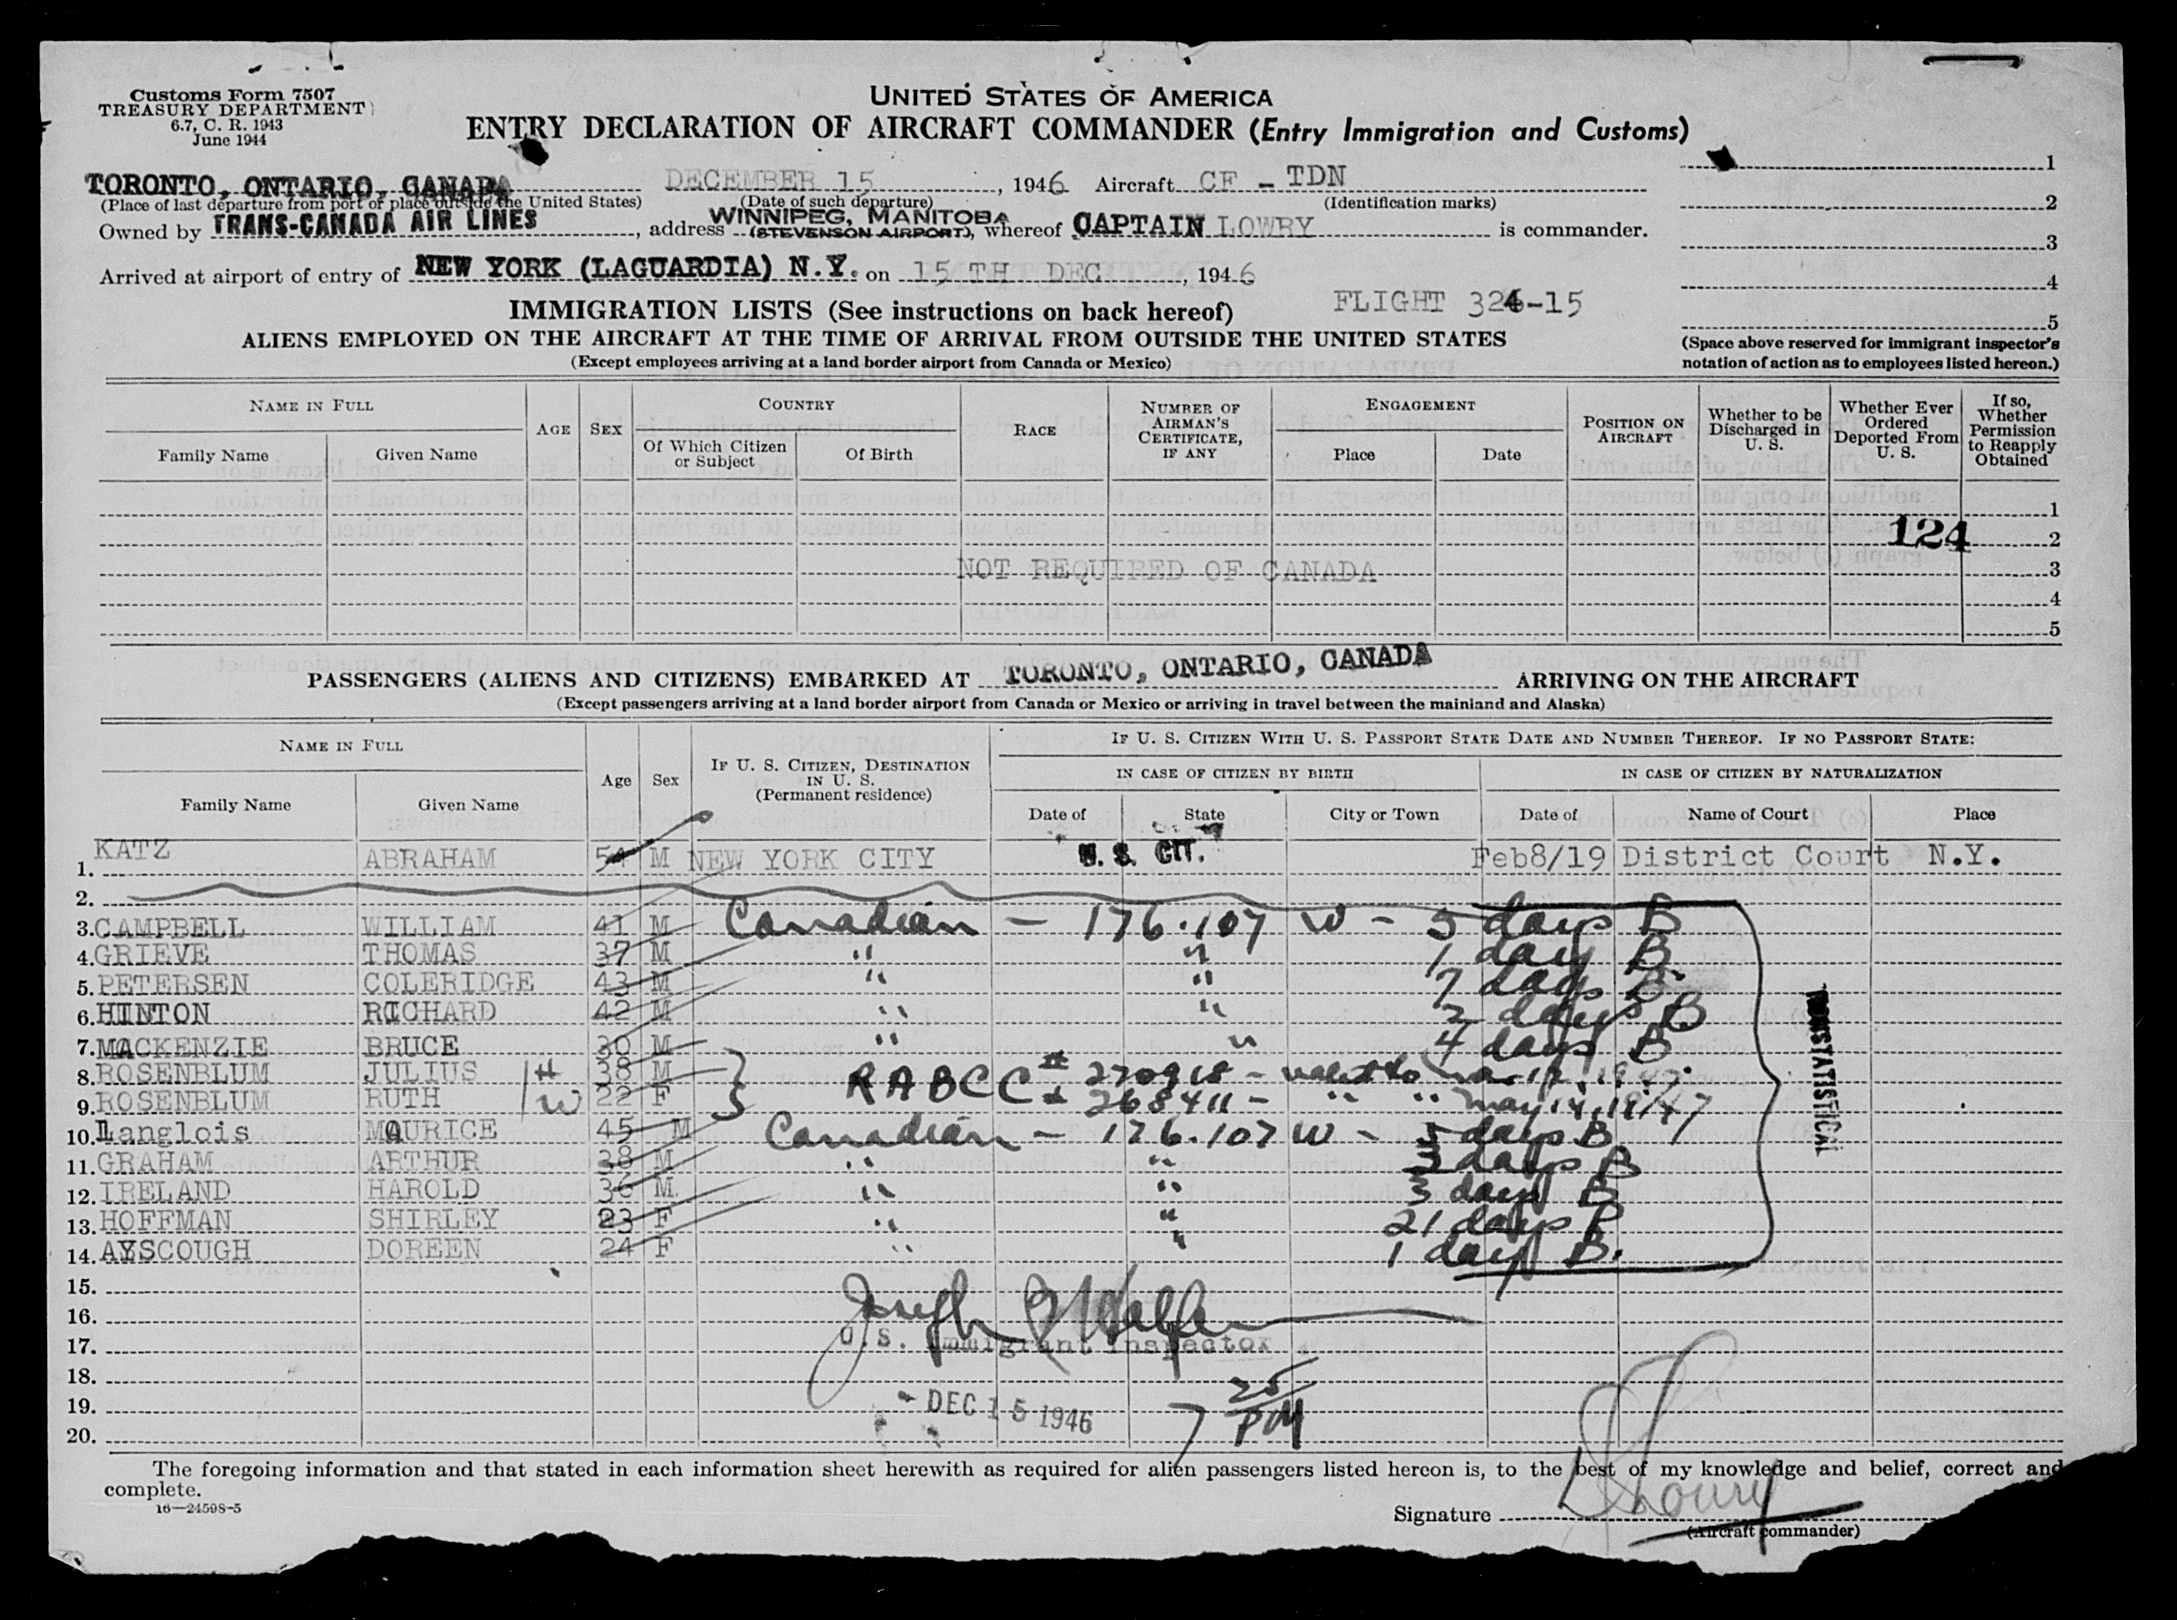 Customs Form 7507
TREASURY DEPARTMENT
6.7, C. R. 1943
June 1944
UNITED STATES OF AMERICA
ENTRY DECLARATION OF AIRCRAFT COMMANDER (Entry Immigration and Customs)
TORONTO, ONTARIO, CANADA DECEMBER 15, 1946 Aircraft CF - TDN
(Place of last departure from port or place outside the United States) (Date of such departure) (Identification marks)
Owned by TRANS-CANADA AIR LINES, address WINNIPEG, MANITOBA (STEVENSON AIRPORT), whereof CAPTAIN LOWRY is commander.
Arrived at airport of entry of NEW YORK (LAGUARDIA) N.Y. on 15 TH DEC, 1946
1
2
3
4
5
(Space above reserved for immigrant inspector's notation of action as to employees listed hereon.)
IMMIGRATION LISTS (See instructions on back hereof) FLIGHT 324-15
ALIENS EMPLOYED ON THE AIRCRAFT AT THE TIME OF ARRIVAL FROM OUTSIDE THE UNITED STATES
(Except employees arriving at a land border airport from Canada or Mexico)
NAME IN FULL AGE SEX COUNTRY RACE NUMBER OF AIRMAN'S CERTIFICATE, IF ANY ENGAGEMENT POSITION ON AIRCRAFT Whether to be Discharged in U. S. Whether Ever Ordered Deported From U. S. If so, Whether Permission to Reapply Obtained
Family Name Given Name Of Which Citizen or Subject Of Birth Place Date
1
124 2
NOT REQUIRED OF CANADA 3
4
5
PASSENGERS (ALIENS AND CITIZENS) EMBARKED AT TORONTO, ONTARIO, CANADA ARRIVING ON THE AIRCRAFT
(Except passengers arriving at a land border airport from Canada or Mexico or arriving in travel between the mainland and Alaska)
NAME IN FULL Age Sex IF U. S. CITIZEN, DESTINATION IN U. S. (Permanent residence) IF U. S. CITIZEN WITH U. S. PASSPORT STATE DATE AND NUMBER THEREOF. IF NO PASSPORT STATE:
IN CASE OF CITIZEN BY BIRTH IN CASE OF CITIZEN BY NATURALIZATION
Family Name Given Name Date of State City or Town Date of Name of Court Place
1. KATZ ABRAHAM 54 M NEW YORK CITY U. S. CIT. Feb8/19 District Court N.Y.
2.
3. CAMPBELL WILLIAM 41 M Canadian - 176.107 W - 5 days B
4. GRIEVE THOMAS 37 M " " 1 day B
5. PETERSEN COLERIDGE 43 M " " 7 days B.
6. HINTON RICHARD 42 M " " 2 days B
7. MACKENZIE BRUCE 30 M " " 4 days B
8. ROSENBLUM JULIUS H 38 M RABCC # 270918 - valid to
9. ROSENBLUM RUTH W 22 F 268411 - " " May 14, 1947
10. Langlois MAURICE 45 M Canadian - 176.107 W - 5 days B
11. GRAHAM ARTHUR 38 M " " 3 days B
12. IRELAND HAROLD 36 M " " 3 days B
13. HOFFMAN SHIRLEY 23 F " " 21 days P
14. AYSCOUGH DOREEN 24 F " " 1 day B.
NONSTATISTICAL
15.
16. Joseph
17. U.S. Immigrant Inspector
18.
19. DEC 15 1946 7 25 PM
20.
The foregoing information and that stated in each information sheet herewith as required for alien passengers listed hereon is, to the best of my knowledge and belief, correct and
complete.
16—24598-5
Signature Lowry
(Aircraft commander)